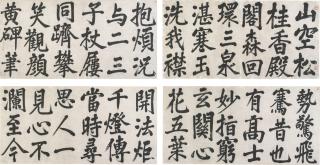 山空松
桂香殿
閣森回
環三泉
湛寒玉
洗我襟
抱煩況
与二三
子杖屨
同躋攀
笑觀顏
黄碑筆
勢驚飛
騫昔也
有髙士
妙指窮
玄關心
花五葉
開法炬
千燈傳
當時尋
思人一
見心不
瀾至今